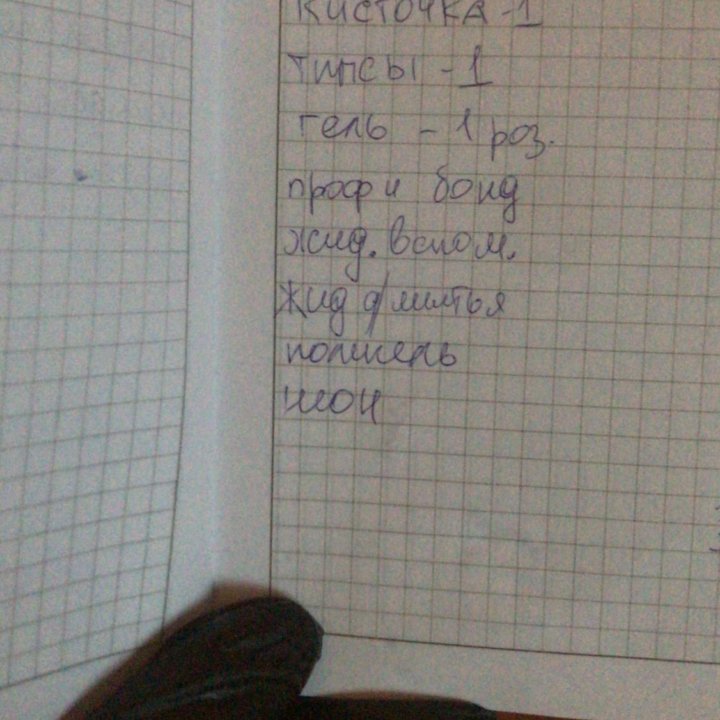 КИСТОЧКА - 1
ТИПСЫ - 1
гель - 1 роз.
профи бонд
жид. вспом.
жид д/литья
полигель
неон